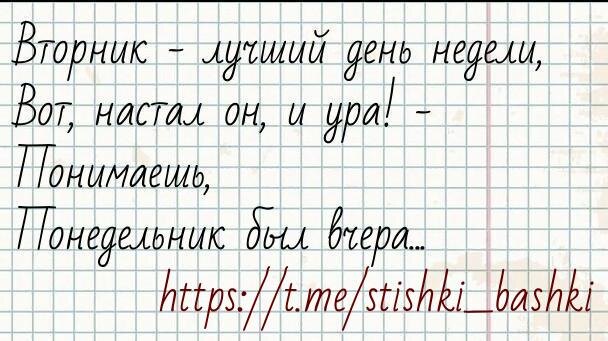 Вторник - лучший день недели,
Вот, настал он, и ура! -
Понимаешь,
Понедельник был вчера...
https://t.me/stishki_bashki